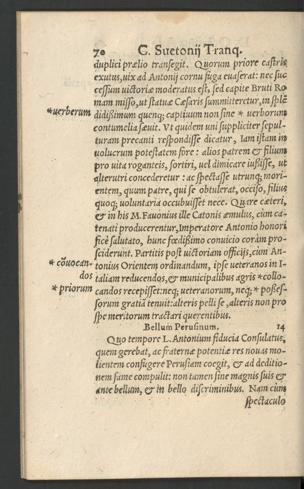 70 C. Suetonij Tranq.
duplici prælio transegit. Quorum priore castris
exutus, uix ad Antonij cornu fuga euaserat: nec suc
cessum uictoriæ moderatus est, sed capite Bruti Ro
mam misso, ut statuæ Cæsaris summitteretur, in splē
*uerberum didissimum quenq; captiuum non sine * uerborum
contumelia sæuit. Vt quidem uni suppliciter sepul-
turam precanti respondisse dicatur, Iam istam in
uolucrum potestatem fore: alios patrem & filium
pro uita roganteis, sortiri, uel dimicare iussisse, ut
alterutri concederetur: ac spectasse utrunq; mori-
entem, quum patre, qui se obtulerat, occiso, filius
quoq; uoluntaria occubuisset nece. Quare cæteri,
& in his M. Fauonius ille Catonis æmulus, cùm ca-
tenati producerentur, Imperatore Antonio honori
ficè salutato, hunc fœdissimo conuicio coràm pro-
sciderunt. Partitis post uictoriam officijs, cùm An-
* cōuocan- tonius Orientem ordinandum, ipse ueteranos in I-
dos taliam reducendos, & municipalibus agris *collo-
* priorum candos recepisset: neq; ueteranorum, neq; * posses-
sorum gratiã tenuit: alteris pelli se, alteris non pro
spe meritorum tractari querentibus.
Bellum Perusinum. 14
Quo tempore L. Antonium fiducia Consulatus,
quem gerebat, ac fraternæ potentiæ res nouas mo-
lientem confugere Perusiam coegit, & ad deditio-
nem fame compulit: non tamen sine magnis suis &
ante bellum, & in bello discriminibus. Nam cùm
spectaculo